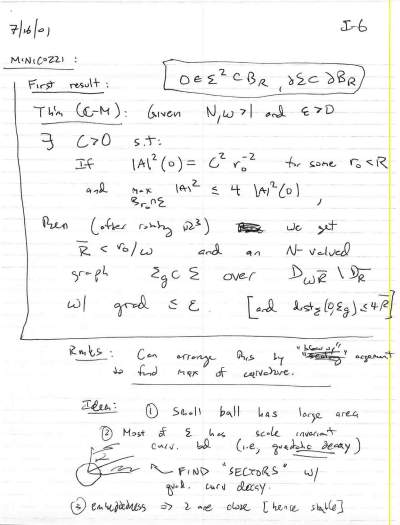 7/16/01
I-6
MINICOZZI:
0 ∈ Σ² ⊂ B_R, ∂Σ ⊂ ∂B_R
First result:
Thm (C-M): Given N, ω > 1 and ε > 0
∃ C > 0 s.t.:
If |A|²(0) = C² r₀⁻² for some r₀ < R
and max_{B_{r₀}∩Σ} |A|² ≤ 4 |A|²(0),
Then (after rotating ℝ³) we get
R̄ < r₀/ω and an N-valued
graph Σ_g ⊂ Σ over D_{ωR̄} \ D_{R̄}
w/ grad ≤ ε. [and dist_Σ(0,Σ_g) ≤ 4R̄]
Rmks: Can arrange this by "blow up" argument
to find max of curvature.
Idea: ① Small ball has large area
② Most of Σ has scale invariant
curv. bd (i.e., quadratic decay)
FIND "SECTORS" w/
quad. curv decay.
③ embeddedness ⇒ 2 are close [hence stable]